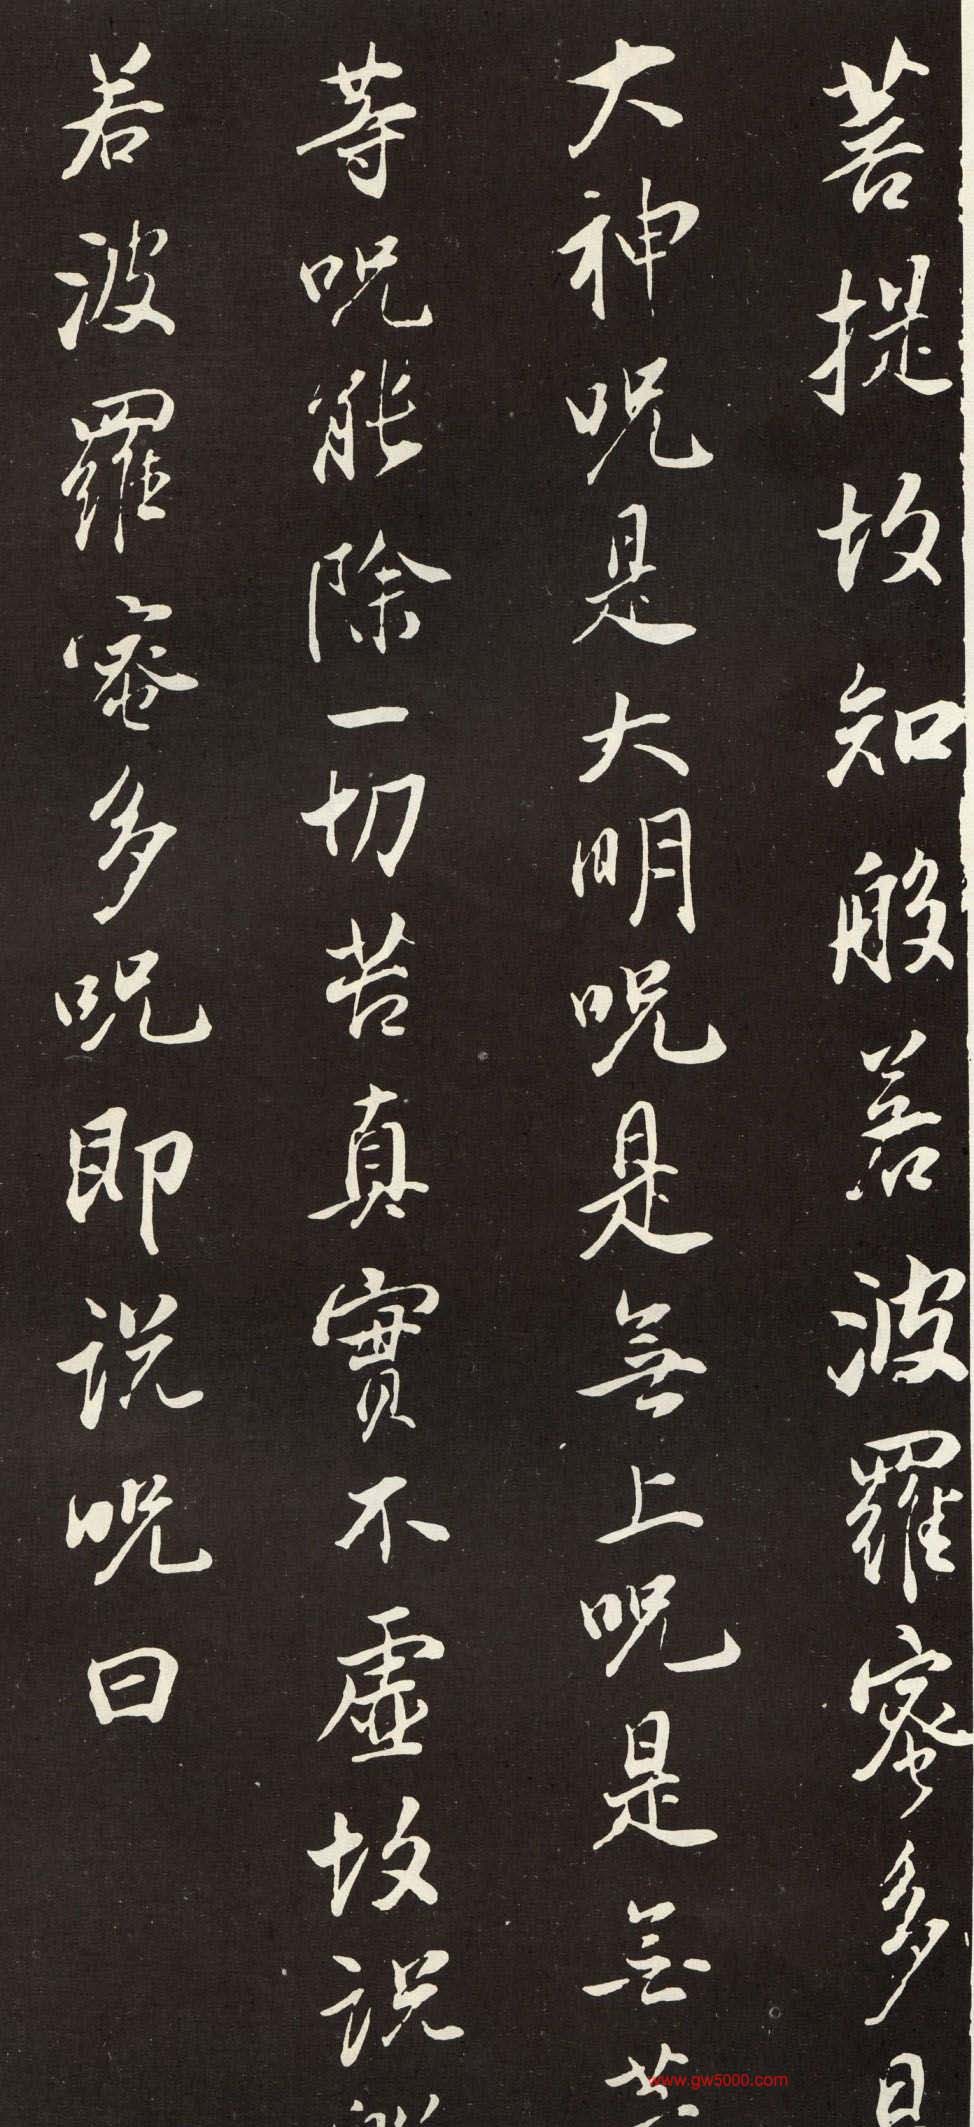 菩提故知般若波羅蜜多
大神咒是大明咒是無上咒是無
等咒能除一切苦真實不虛故說
若波羅蜜多咒即說咒曰
www.gw5000.com